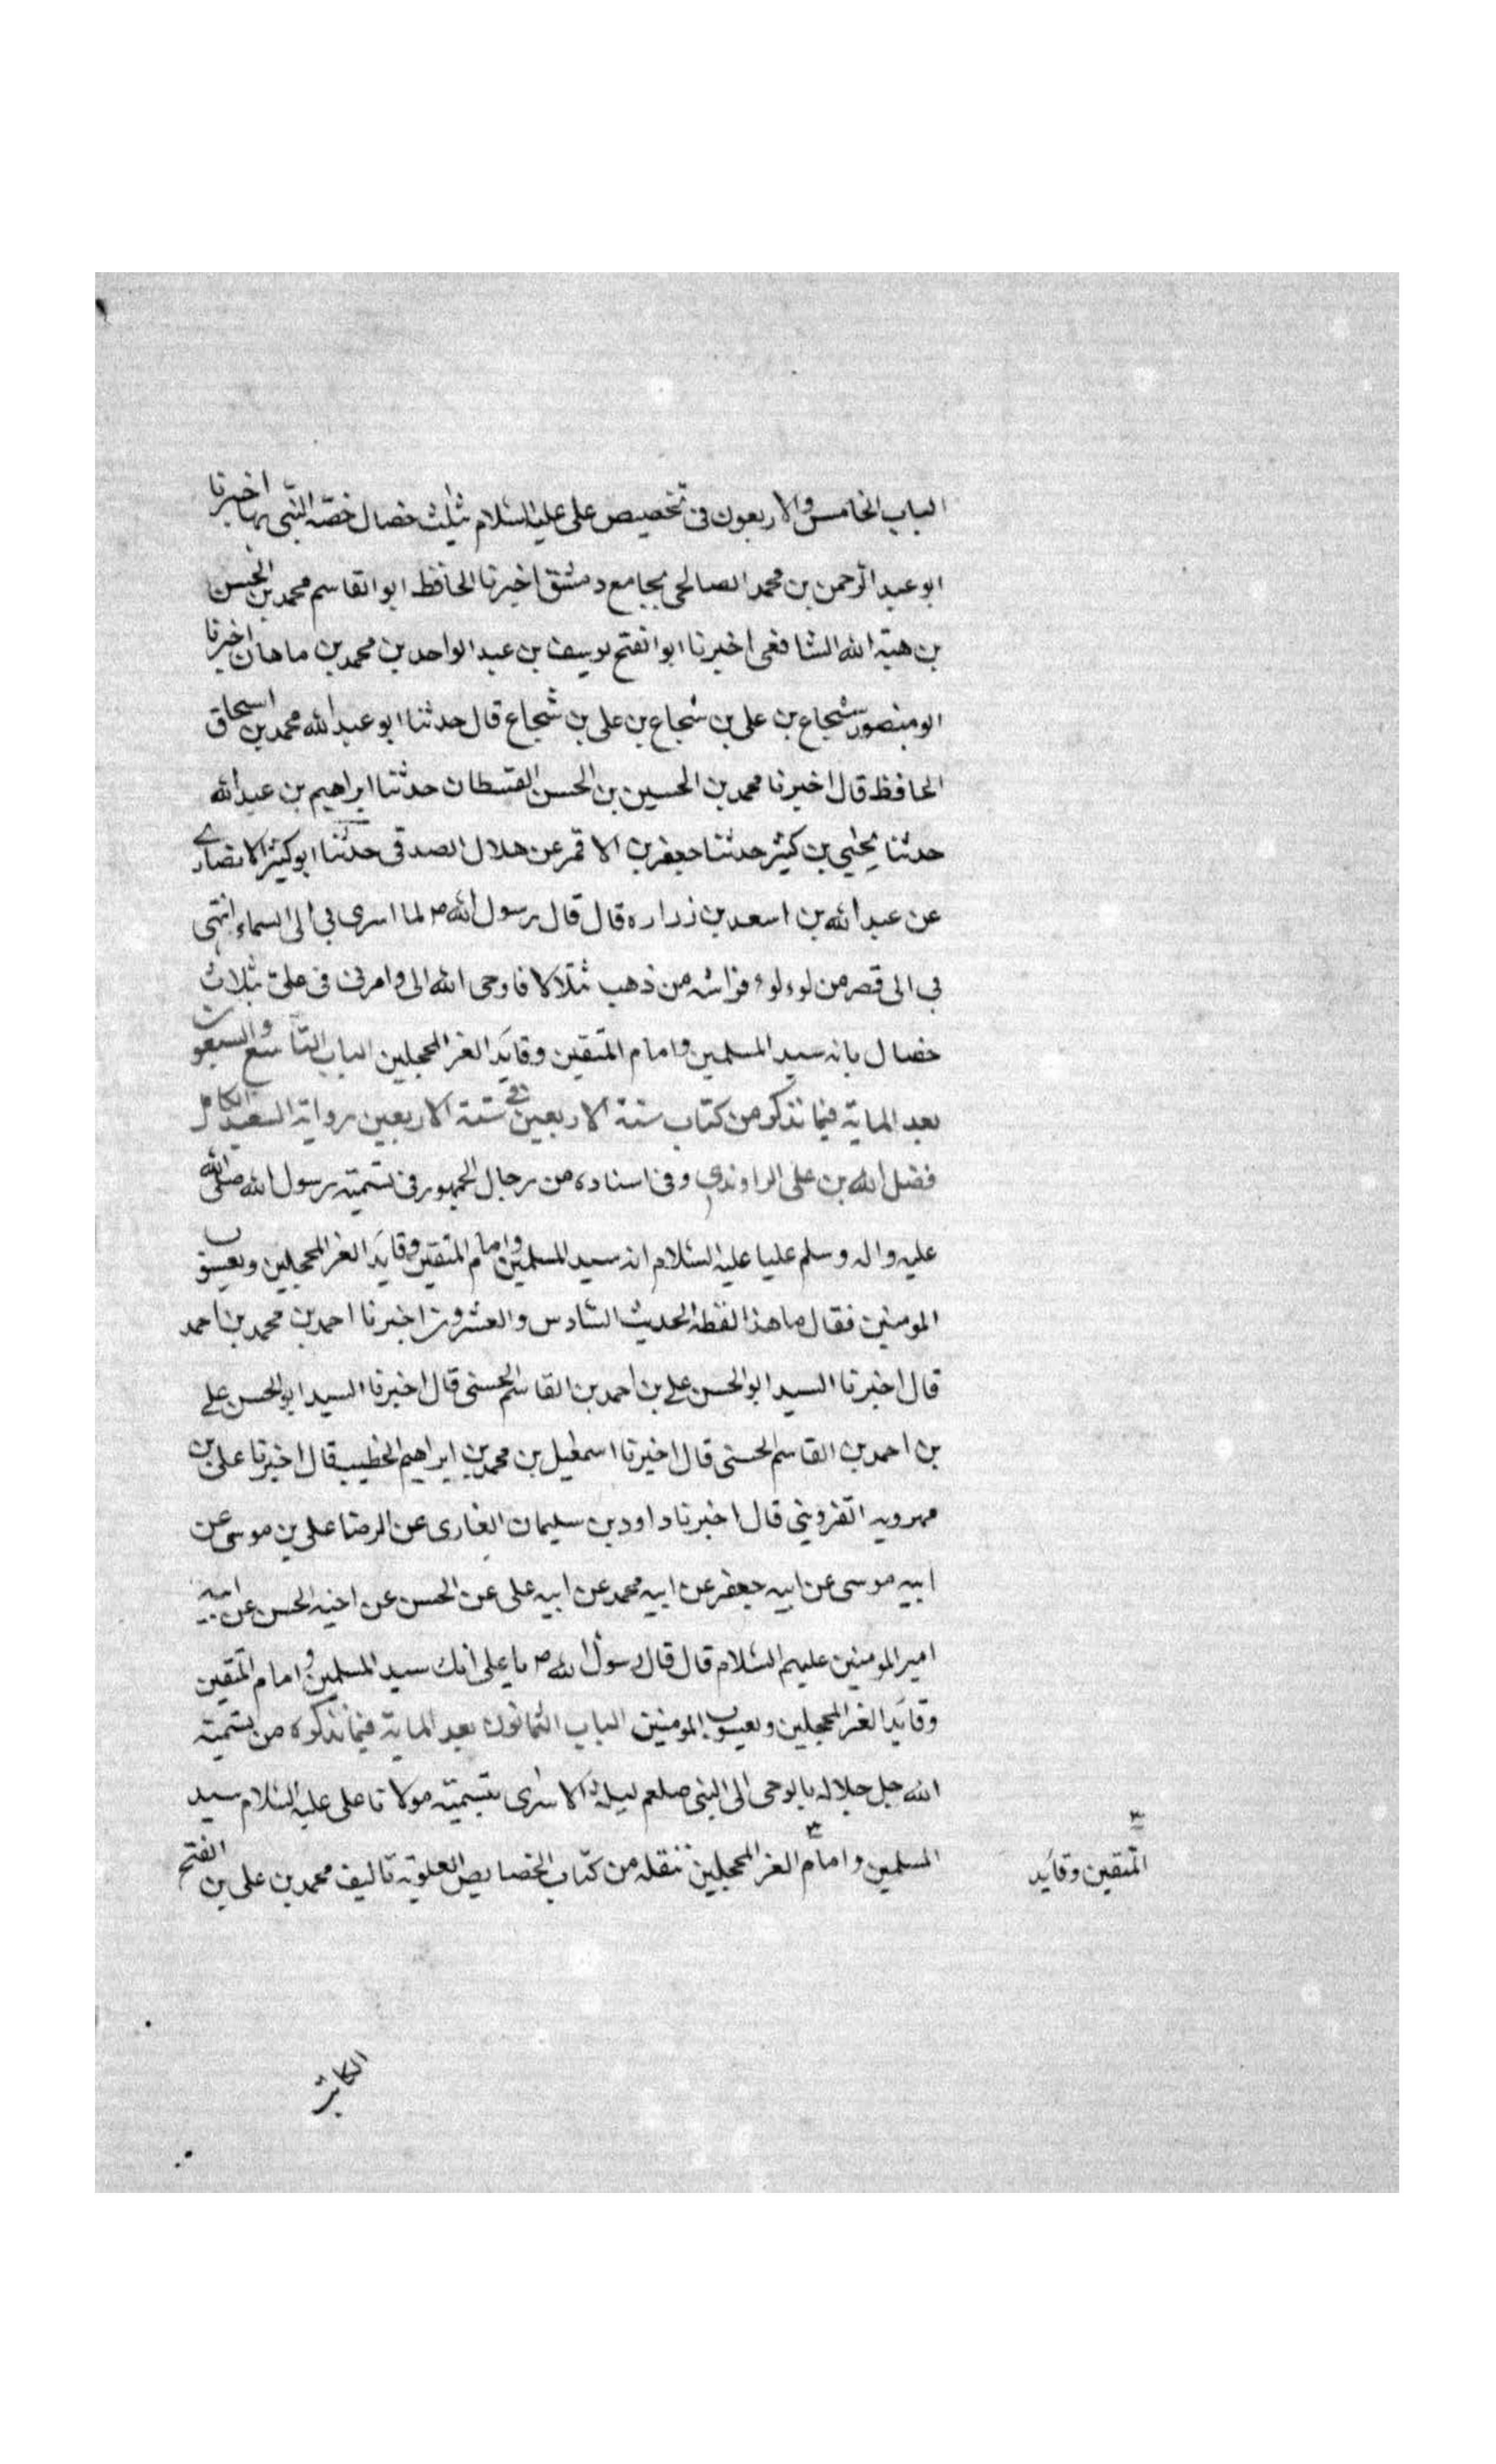 الباب الخامس والاربعون فى تخصيص على عليه السلام بثلث خصال خصه النبى بها اخبرنا
ابو عبد الرحمن بن محمد الصالحى بجامع دمشق اخبرنا الحافظ ابو القاسم محمد بن الحسن
بن هبة الله الشافعى اخبرنا ابو الفتح يوسف بن عبد الواحد بن محمد بن ماهان اخبرنا
ابو منصور شجاع بن على بن شجاع بن على بن شجاع قال حدثنا ابو عبد الله محمد بن اسحاق
الحافظ قال اخبرنا محمد بن الحسين بن الحسن القسطان حدثنا ابراهيم بن عبد الله
حدثنا يحيى بن كثير حدثنا جعفر بن الاقمر عن هلال الصدقى حدثنا ابو كثير الانصارى
عن عبد الله بن اسعد بن زراره قال قال رسول الله ص لما اسرى بى الى السماء انتهى
بى الى قصر من لوءلوء فراشه من ذهب يتلالا فاوحى الله الى وامرنى فى على بثلاث
خصال بانه سيد المسلمين وامام المتقين وقايد الغر المحجلين الباب التاسع والسبعون
بعد الماية فيما نذكر من كتاب سنة الاربعين فى سنة الاربعين رواية السعيد الكامل
فضل الله بن على الراوندى وفى اسناده من رجال الجمهور فى تسمية رسول الله صلى الله
عليه واله وسلم عليا عليه السلام انه سيد المسلمين وامام المتقين وقايد الغر المحجلين ويعسوب
المومنين فقال ما هذا لفظه الحديث السادس والعشرون اخبرنا احمد بن محمد بن احمد
قال اخبرنا السيد ابو الحسن على بن احمد بن القاسم الحسنى قال اخبرنا السيد ابو الحسن على
بن احمد بن القاسم الحسنى قال اخبرنا اسمعيل بن محمد بن ابراهيم الخطيب قال اخبرنا على بن
مهرويه القزوينى قال اخبرنا داود بن سليمان الغازى عن الرضا على بن موسى عن
ابيه موسى عن ابيه جعفر عن ابيه محمد عن ابيه على عن الحسن عن اخيه الحسن عن ابيه
امير المومنين عليهم السلام قال قال رسول الله ص يا على انك سيد المسلمين وامام المتقين
وقايد الغر المحجلين ويعسوب المومنين الباب الثمانون بعد الماية فيما نذكره من تسمية
الله جل جلاله بالوحى الى النبى صلعم ليلة الاسرى بتسمية مولانا على عليه السلام سيد
المسلمين وامام الغر المحجلين ننقله من كتاب الخصايص العلوية تاليف محمد بن على بن الفتح
المتقين وقايد
الكاتب